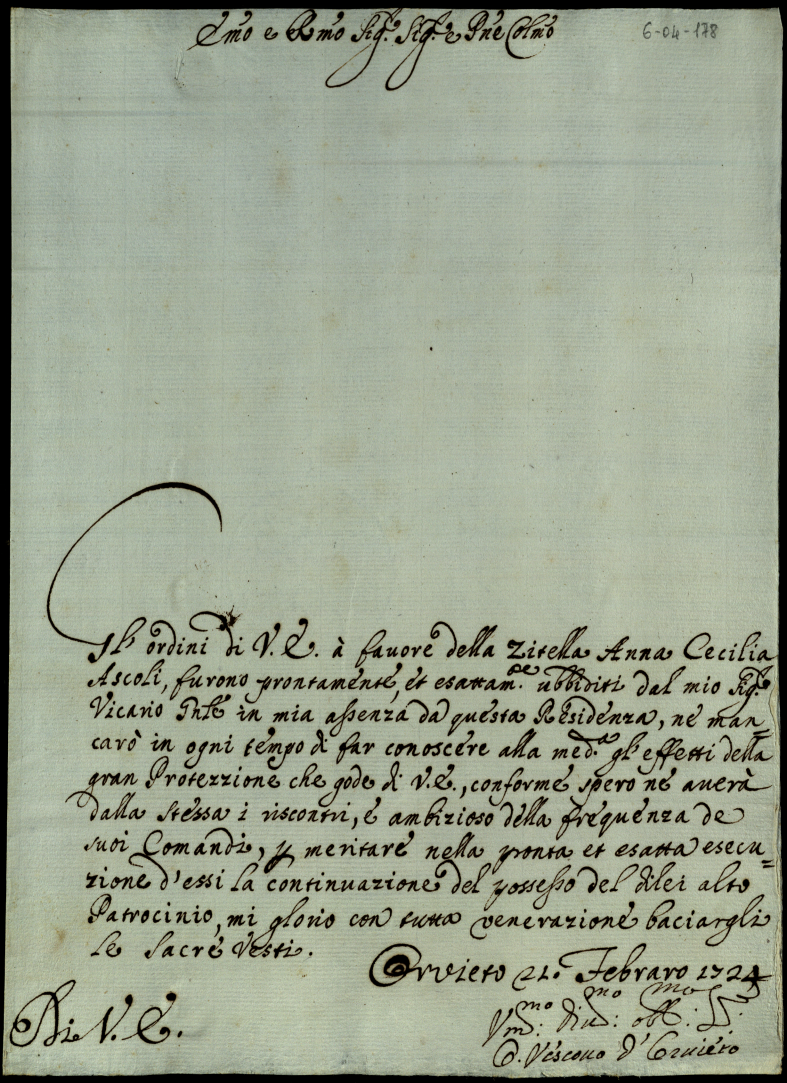 Emo e Rmo Sig.r Sig.r e Pne Colmo
6-04-178
Gl' ordini di V. E. à fauore della Zitella Anna Cecilia
Ascoli, furono prontamente, et esattam.te ubbiditi dal mio Sig.r
Vicario Gnle in mia assenza da questa Residenza, ne man=
carò in ogni tempo di far conoscere alla med.a gl' effetti della
gran Protezzione che gode di V. E., conforme spero ne auerà
dalla stessa i riscontri, e ambizioso della frequenza de
suoi Comandi, p meritare nella pronta et esatta esecu=
zione d'essi la continuazione del possesso del dilei alto
Patrocinio, mi glorio con tutta venerazione baciargli
le Sacre Vesti.
Orvieto 21. Febraro 1724
Di V. E.
Vm:mo diu:mo obl:mo
O. Vescouo d' Oruieto